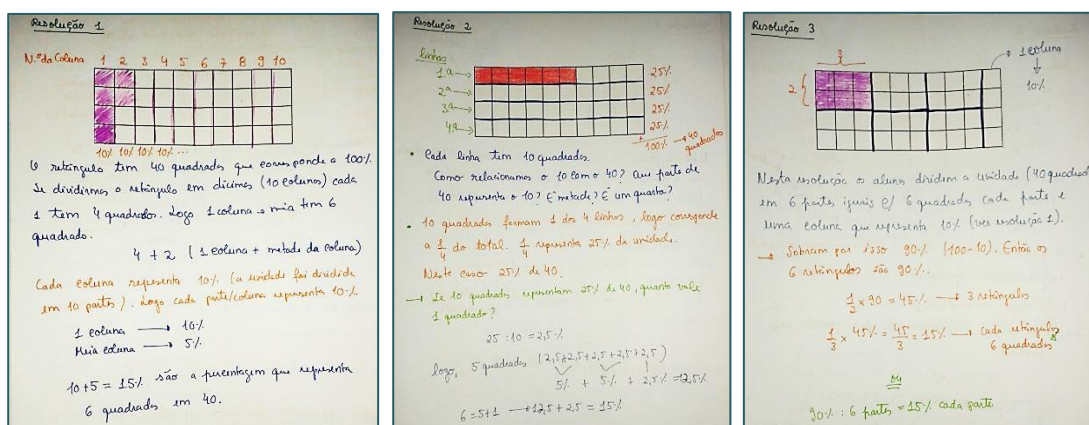 Resolução 1
N.º da Coluna 1 2 3 4 5 6 7 8 9 10
10% 10% 10% 10% ...
O retângulo tem 40 quadrados que corresponde a 100%.
Se dividirmos o retângulo em décimas (10 colunas) cada
1 tem 4 quadrados. Logo 1 coluna e meia tem 6
quadrado.
4 + 2 (1 coluna + metade da coluna)
Cada coluna representa 10% (a unidade foi dividida
em 10 partes). Logo cada parte/coluna representa 10%.
1 coluna → 10%
Meia coluna → 5%
10 + 5 = 15% são a percentagem que representa
6 quadrados em 40.
Resolução 2
linhas
1.ª → 25%
2ª → 25%
3ª → 25%
4ª → 25%
+
100% → 40
quadrados
• Cada linha tem 10 quadrados.
Como relacionamos o 10 com o 40? Que parte de
40 representa o 10? É metade? É um quarto?
• 10 quadrados formam 1 das 4 linhas, logo corresponde
a 1/4 do total. 1/4 representa 25% da unidade.
Neste caso 25% de 40.
→ Se 10 quadrados representam 25% de 40, quanto vale
1 quadrado?
25 : 10 = 2,5%
logo, 5 quadrados (2,5+2,5+2,5+2,5+2,5)
5% + 5% + 2,5% = 12,5%
6 = 5+1 → 12,5 + 2,5 = 15%
Resolução 3
3
2
→ 1 coluna
↓
10%
Nesta resolução os alunos dividem a unidade (40 quadrados
em 6 partes iguais c/ 6 quadrados cada parte e
uma coluna que representa 10% (ver resolução 1).
→ Sobram por isso 90% (100-10). Então os
6 retângulos são 90%.
1/2 x 90 = 45% → 3 retângulos
1/3 x 45% = 45/3 = 15% → cada retângulos
6 quadrados
ou
90% : 6 partes = 15% cada parte